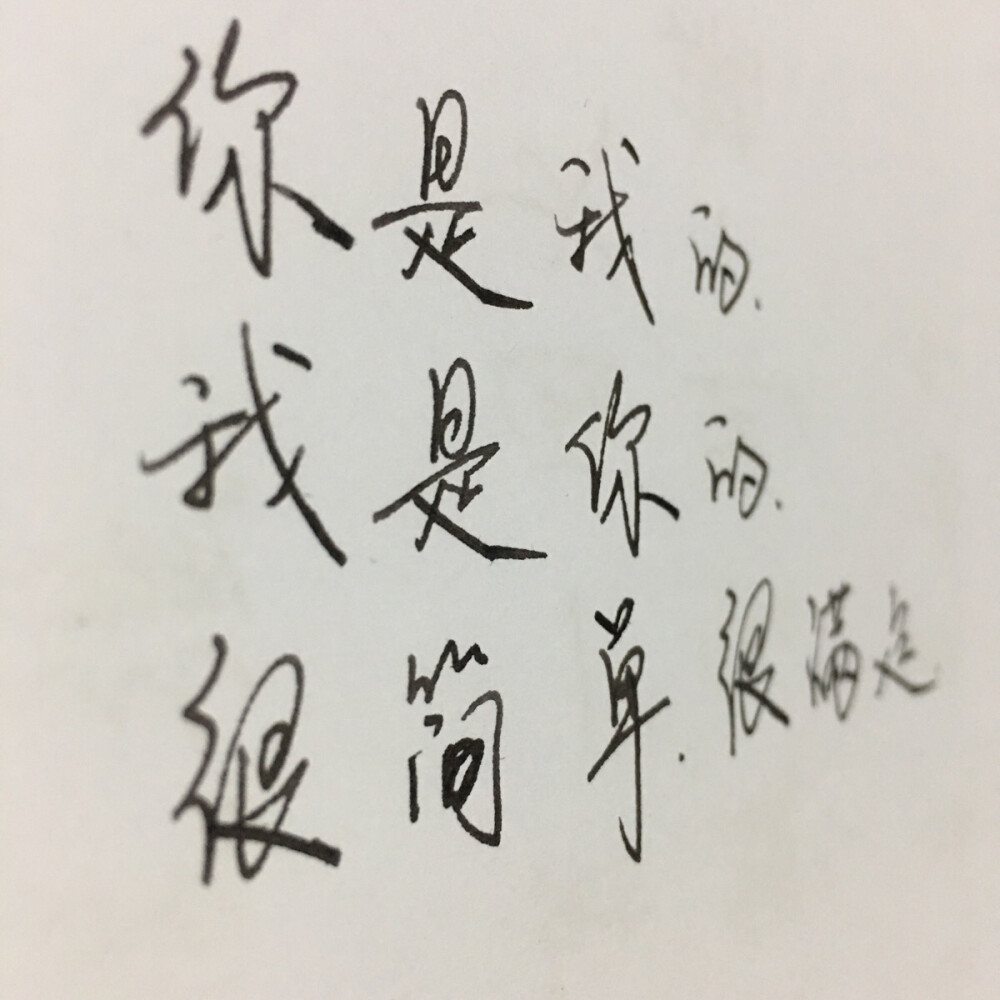 你是我的.
我是你的.
很简单.很满足